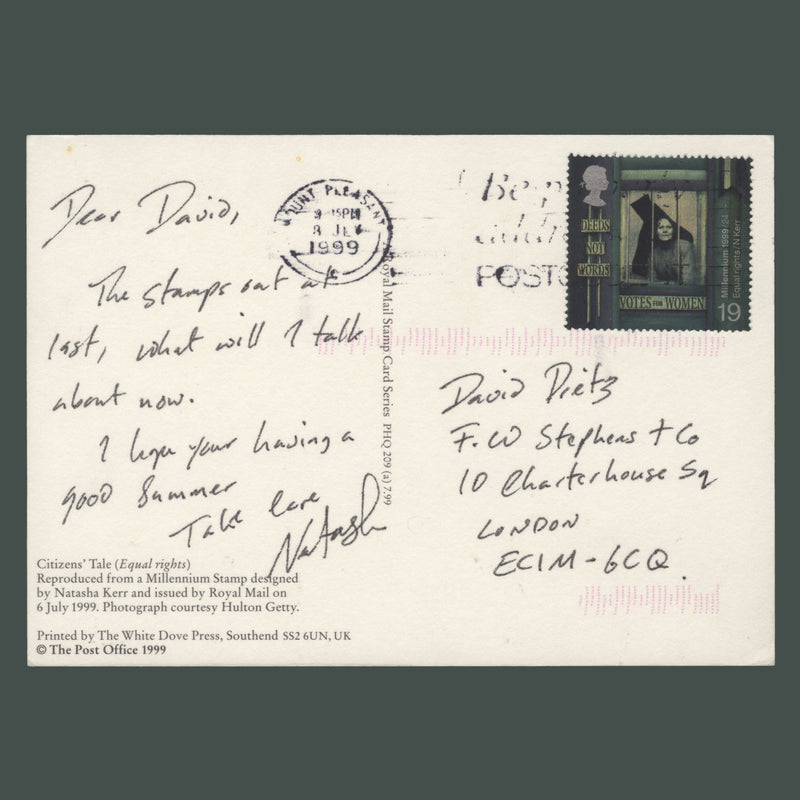 Dear David,
The stamps out at
last, what will I talk
about now.
I hope your having a
good Summer
Take care
Natasha
Citizens' Tale (Equal rights)
Reproduced from a Millennium Stamp designed
by Natasha Kerr and issued by Royal Mail on
6 July 1999. Photograph courtesy Hulton Getty.
Printed by The White Dove Press, Southend SS2 6UN, UK
© The Post Office 1999
Royal Mail Stamp Card Series PHQ 209 (a) 7.99
MOUNT PLEASANT
1999
POSTC
DEEDS
NOT
WORDS
VOTES FOR WOMEN
Millennium 1999/24
Equal rights/N Kerr
19
David Dietz
F.W Stephens + Co
10 Charterhouse Sq
LONDON
EC1M-6CQ.